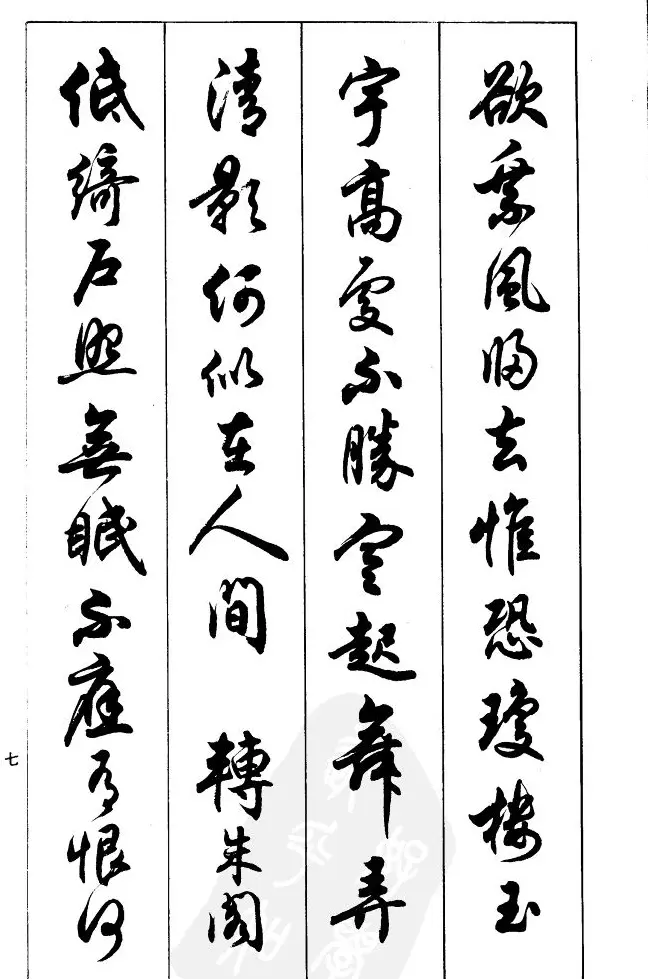 欲乘風歸去惟恐瓊樓玉
宇高處不勝寒起舞弄
清影何似在人間 轉朱閣
低綺戶照無眠不應有恨何
七